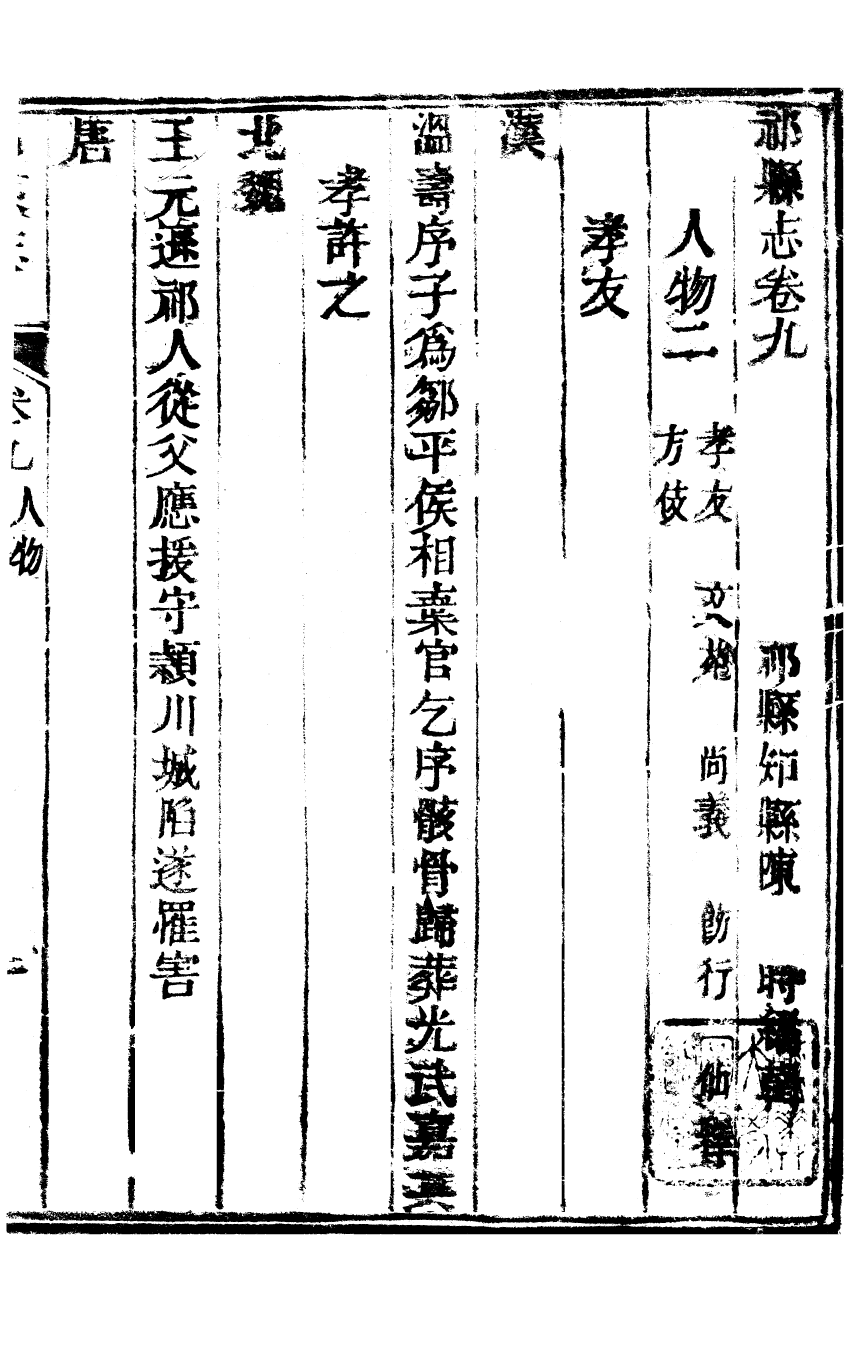 祁縣志卷九
祁縣知縣陳 時纂輯
人物二 孝友 文雄 尚義 飭行 仙釋
方伎
孝友
漢
溫壽序子為鄒平侯相棄官乞序骸骨歸葬光武嘉其
孝許之
北魏
王元遜祁人從父應援守潁川城陷遂罹害
唐
卷九 人物